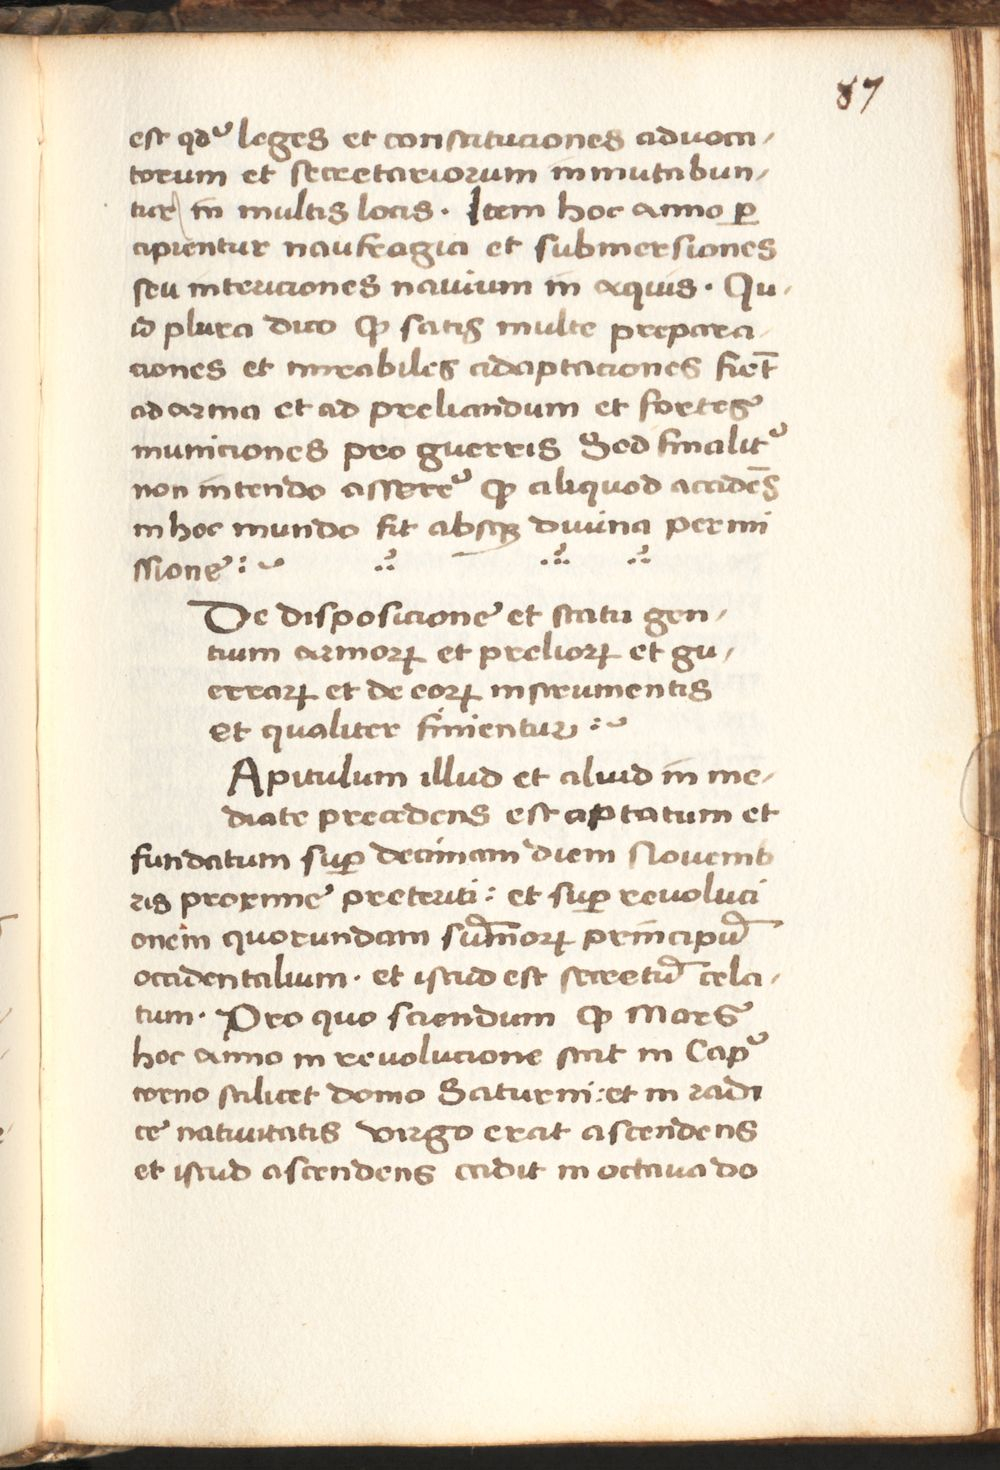 87
est qdꝰ leges et constituciones aduoca-
torum et secretariorum inmutabun-
tur in multis locis. Item hoc anno ꝑ
cipientur naufragia et submersiones
seu intericiones nauium in aquis. Qu-
id plura dico ꝙ satis multe prepara-
ciones et mirabiles adaptaciones fiet̄
ad arma et ad preliandum et fortes
municiones pro guerris Sed finalitꝰ
non intendo asserere ꝙ aliquod accidēs
in hoc mundo fit absqꝫ diuina permi
ssione:~
De disposicione et statu gen-
tium armorꝝ et preliorꝝ et gu-
errarꝝ et de eorꝝ instrumentis
et qualiter finientur:~
Apitulum illud et aliud in me-
diate precedens est aptatum et
fundatum suꝑ decimam diem Nouemb
ris proxime preteriti: et suꝑ reuoluci
onem quorundam sum̄orꝝ principū
occidentalium. et istud est secretū cela-
tum. Pro quo sciendum ꝙ Mars
hoc anno in reuolucione stat in Capꝰ
corno scilicet domo Saturni: et in radi
ce natiuitatis virgo erat ascendens
et istud ascendens cadit in octaua do